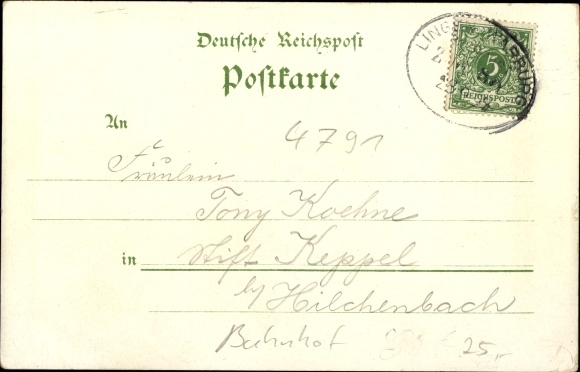 Deutsche Reichspost
Postkarte
5
REICHSPOST
An
4791
Fräulein
Tony Koehne
in Stift Keppel
b/ Hilchenbach
Bahnhof
25,-